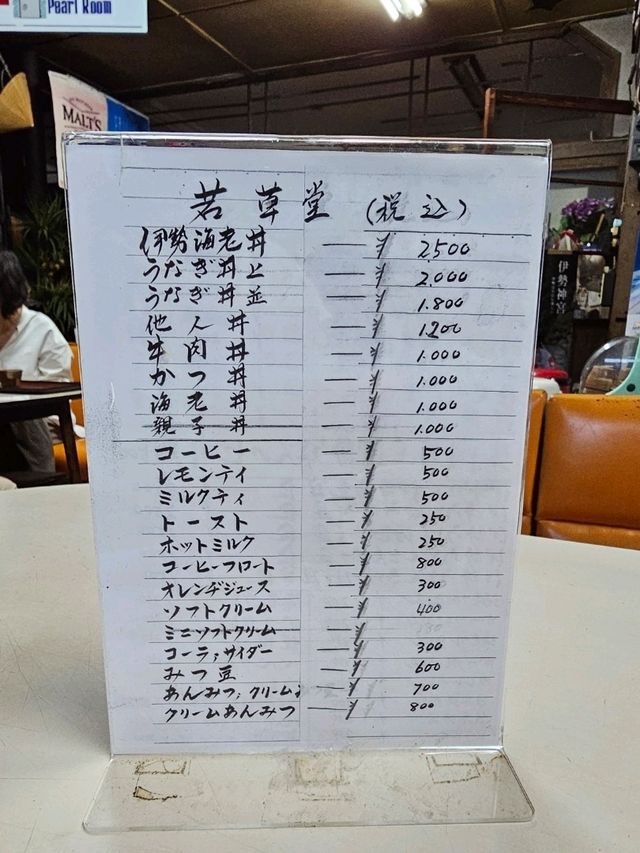 Pearl Room
MALT'S
伊勢神宮
若草堂 (税込)
伊勢海老丼 — ¥ 2500
うなぎ丼上 — ¥ 2.000
うなぎ丼並 — ¥ 1.800
他人丼 — ¥ 1.200
牛肉丼 — ¥ 1.000
かつ丼 — ¥ 1.000
海老丼 — ¥ 1.000
親子丼 — ¥ 1.000
コーヒー — ¥ 500
レモンティ — ¥ 500
ミルクティ — ¥ 500
トースト — ¥ 250
ホットミルク — ¥ 250
コーヒーフロート — ¥ 800
オレンヂジュース — ¥ 300
ソフトクリーム — ¥ 400
ミニソフトクリーム — ¥
コーラ,サイダー — ¥ 300
みつ豆 — ¥ 600
あんみつ,クリーム — ¥ 700
クリームあんみつ — ¥ 800